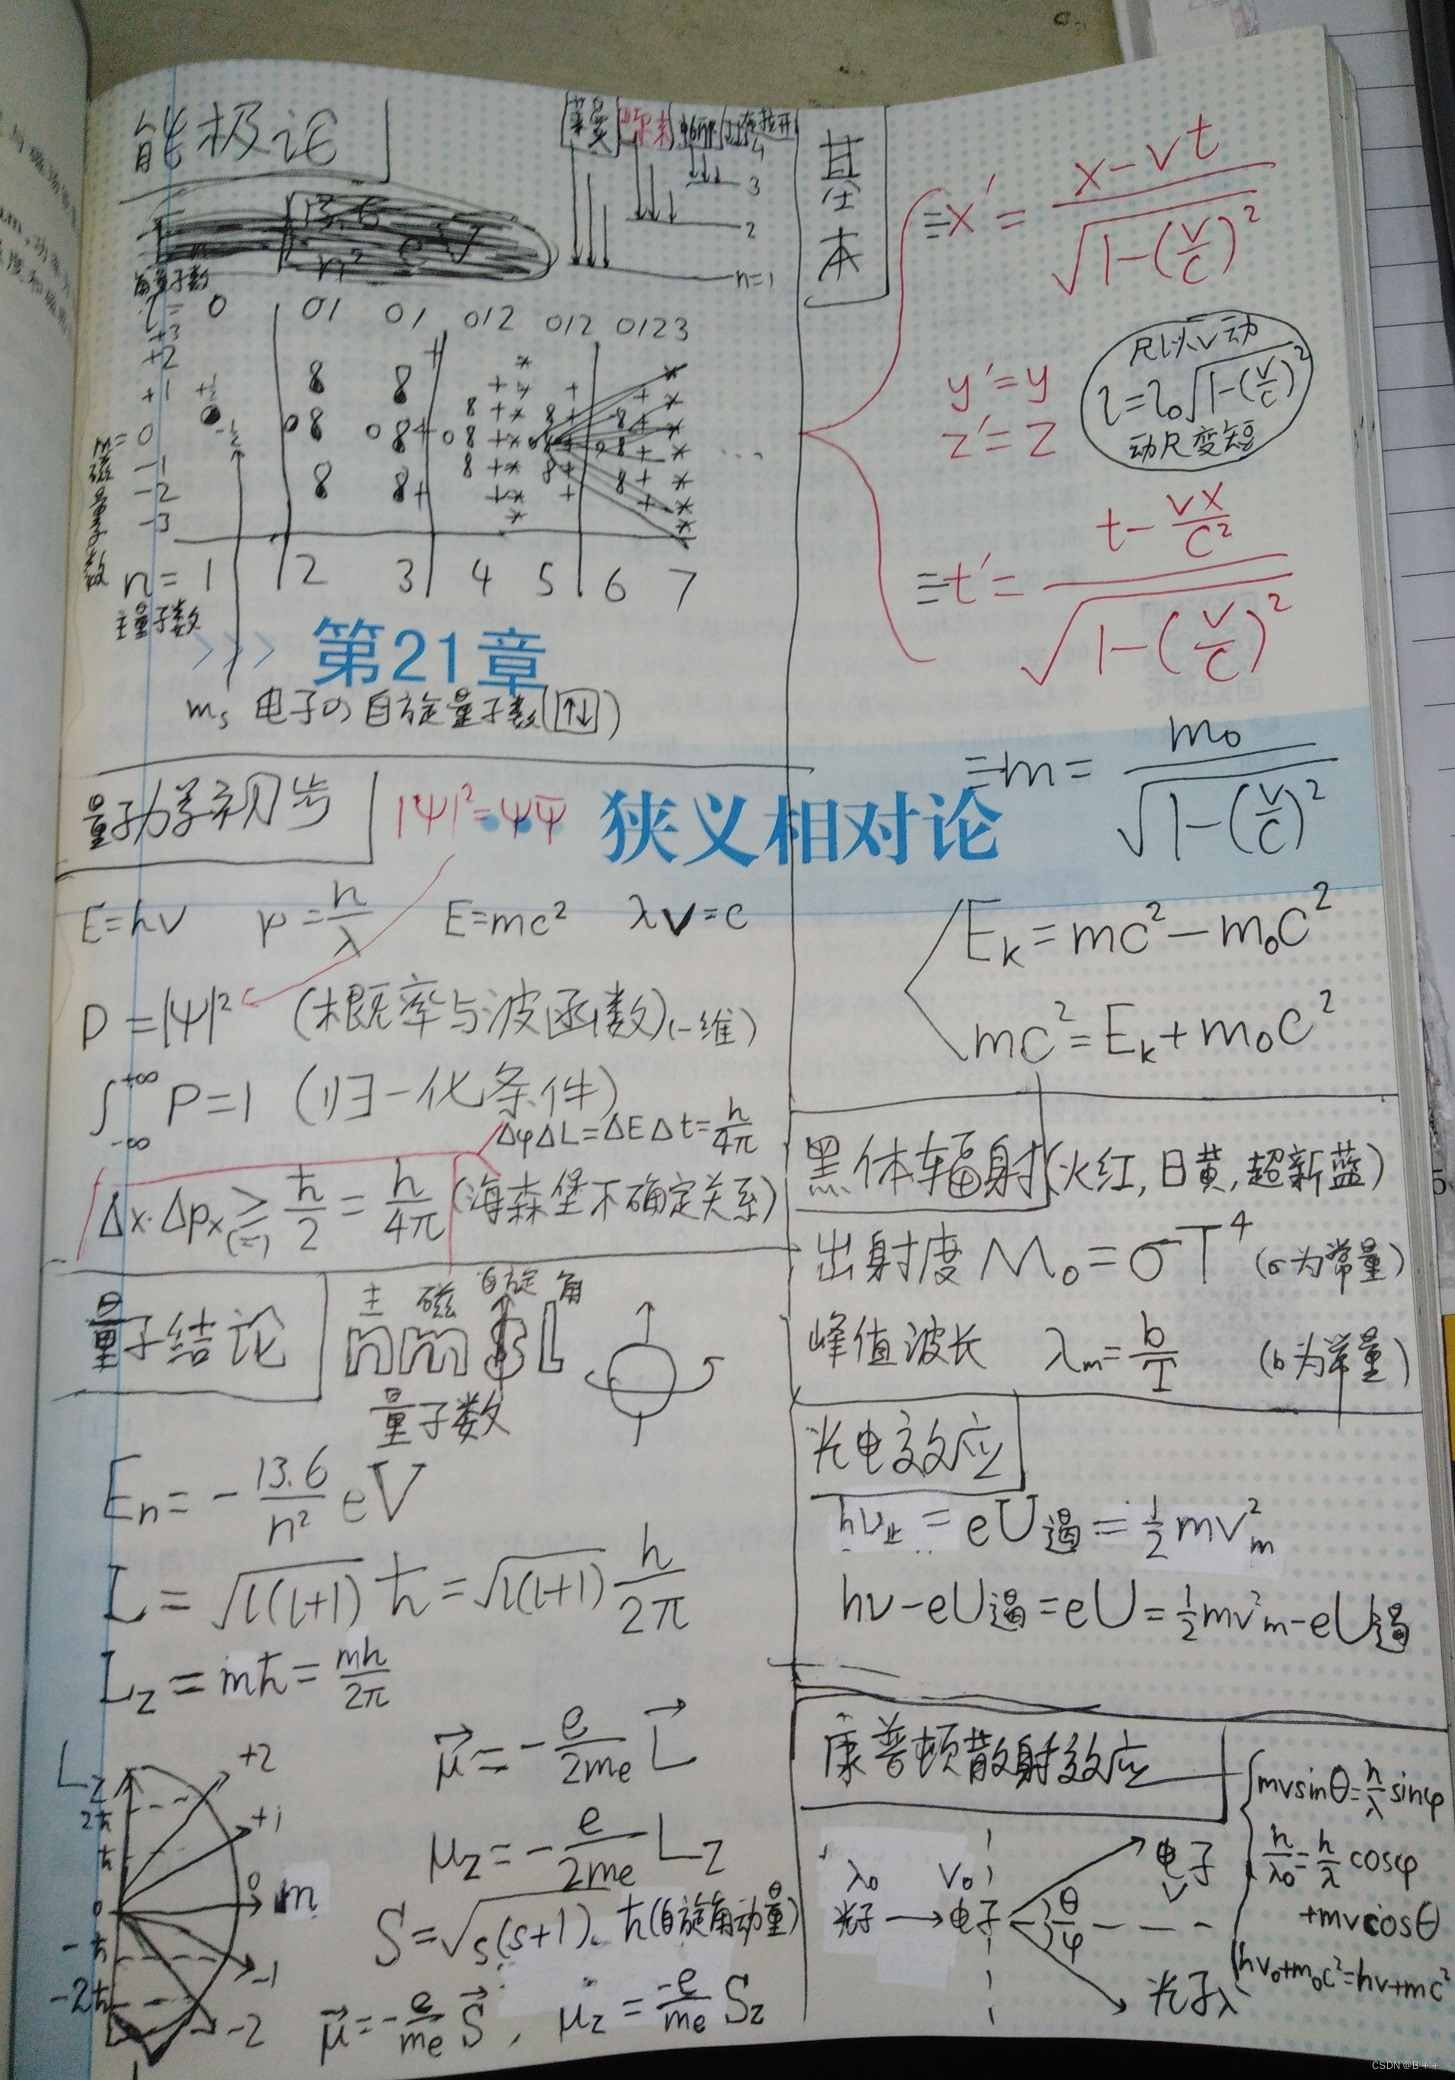 能极论
莱曼 巴尔末
3
2
n=1
角量子数
l= 0 01 01 012 012 0123
+3
+2
+1
0
-1
-2
-3
磁量子数
n= 1 2 3 4 5 6 7
主量子数
第21章
ms 电子の自旋量子数(↑↓)
量子力学初步
|Ψ|²=ΨΨ̅
E=hν p=h/λ E=mc² λν=c
P=|Ψ|² (概率与波函数)(一维)
∫₋∞⁺∞ P=1 (归一化条件)
ΔφΔL=ΔEΔt=h/4π
Δx·Δpx≥(=)ħ/2=h/4π (海森堡不确定关系)
量子结论
主 磁 自旋 角
n m s l
量子数
En=-13.6/n² eV
L=√l(l+1) ħ=√l(l+1) h/2π
Lz=mħ=mh/2π
μ⃗=-e/2me L⃗
μz=-e/2me Lz
S=√s(s+1) ħ(自旋角动量)
μ⃗=-e/me S⃗, μz=-e/me Sz
Lz
2ħ
ħ
0
-ħ
-2ħ
+2
+1
0
m
-1
-2
基本
≡x'=(x-vt)/√1-(v/c)²
y'=y
z'=z
尺以v动
l=l₀√1-(v/c)²
动尺变短
≡t'=(t-vx/c²)/√1-(v/c)²
狭义相对论
≡m=m₀/√1-(v/c)²
Ek=mc²-m₀c²
mc²=Ek+m₀c²
黑体辐射(火红,日黄,超新蓝)
出射度 M₀=σT⁴ (σ为常量)
峰值波长 λm=b/T (b为常量)
光电效应
hν止=eU遏=½mv²m
hν-eU遏=eU=½mv²m-eU遏
康普顿散射效应
mvsinθ=h/λ sinφ
h/λ₀=h/λ cosφ
+mvcosθ
hν₀+m₀c²=hν+mc²
λ₀ V₀
光子→电子
θ
φ
电子
v
光子λ
CSDN @B++